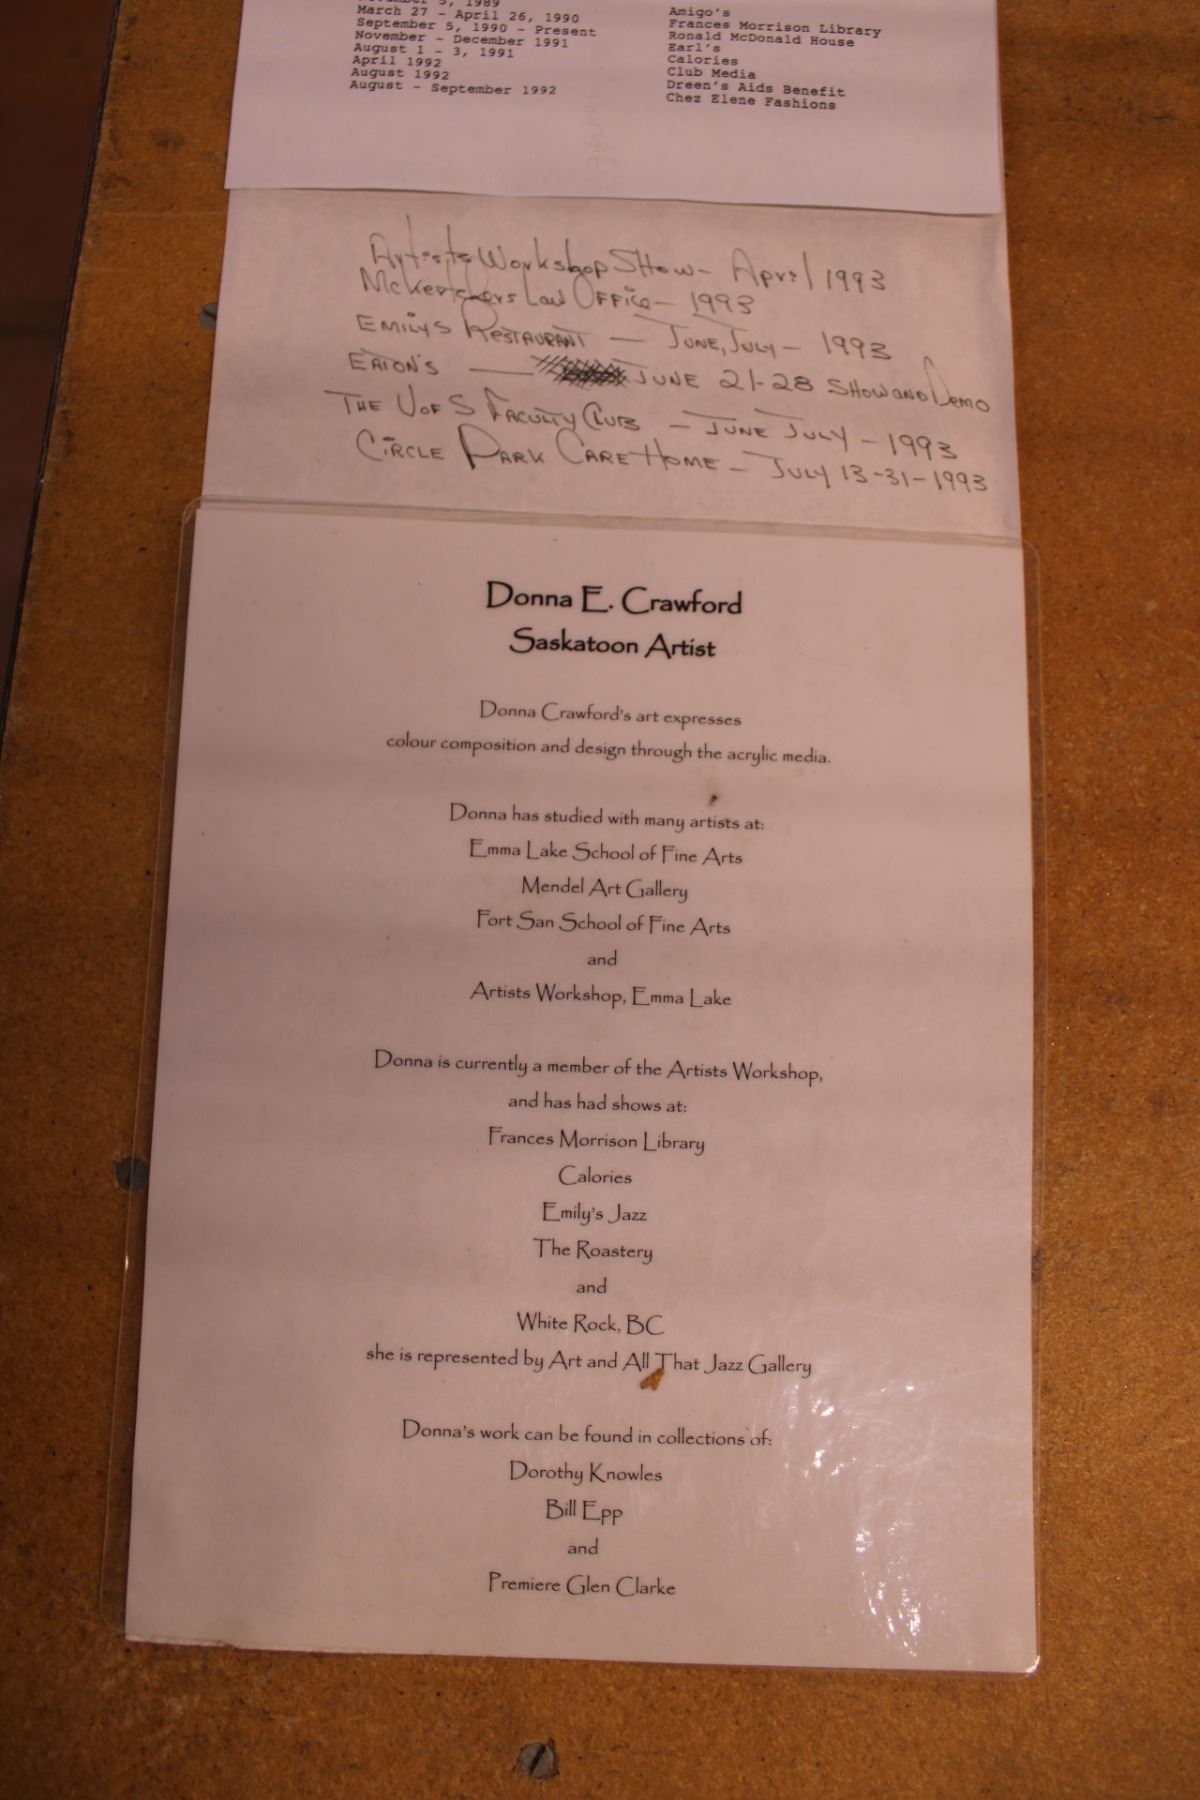 November 5, 1989
March 27 - April 26, 1990
September 5, 1990 - Present
November - December 1991
August 1 - 3, 1991
April 1992
August 1992
August - September 1992
Amigo's
Frances Morrison Library
Ronald McDonald House
Earl's
Calories
Club Media
Dreen's Aids Benefit
Chez Elene Fashions
Artists Workshop SHow - April 1993
Law OFFice - 1993
EMILYS RESTAURANT — JUNE, JULY - 1993
EATON'S — JUNE 21-28 SHOW AND DEMO
THE U OF S FACULTY CLUB - JUNE JULY - 1993
CIRCLE PARK CARE HOME - JULY 13-31-1993
Donna E. Crawford
Saskatoon Artist
Donna Crawford's art expresses
colour composition and design through the acrylic media.
Donna has studied with many artists at:
Emma Lake School of Fine Arts
Mendel Art Gallery
Fort San School of Fine Arts
and
Artists Workshop, Emma Lake
Donna is currently a member of the Artists Workshop,
and has had shows at:
Frances Morrison Library
Calories
Emily's Jazz
The Roastery
and
White Rock, BC
she is represented by Art and All That Jazz Gallery
Donna's work can be found in collections of:
Dorothy Knowles
Bill Epp
and
Premiere Glen Clarke